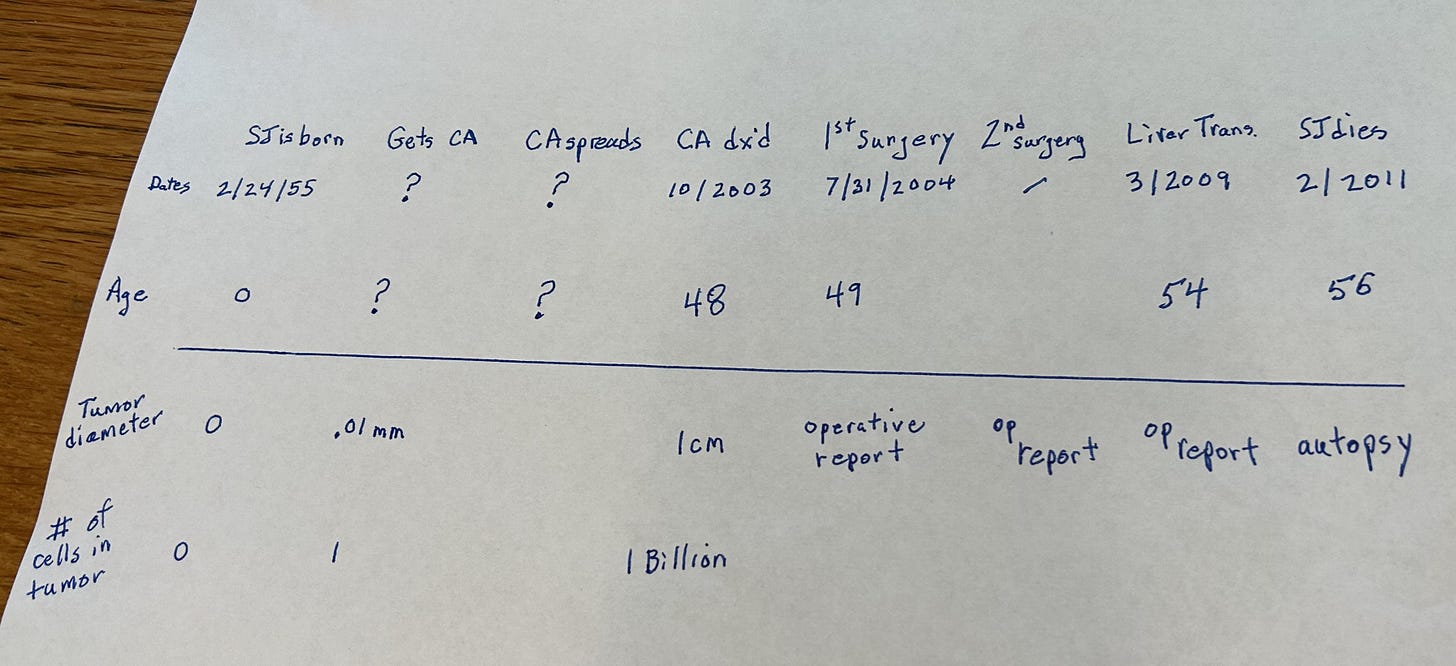 SJ is born Gets CA CA spreads CA dx'd 1st Surgery 2nd surgery Liver Trans. SJ dies
Dates 2/24/55 ? ? 10/2003 7/31/2004 / 3/2009 2/2011
Age 0 ? ? 48 49 54 56
Tumor diameter 0 .01 mm 1 cm operative report op report op report autopsy
# of cells in tumor 0 1 1 Billion